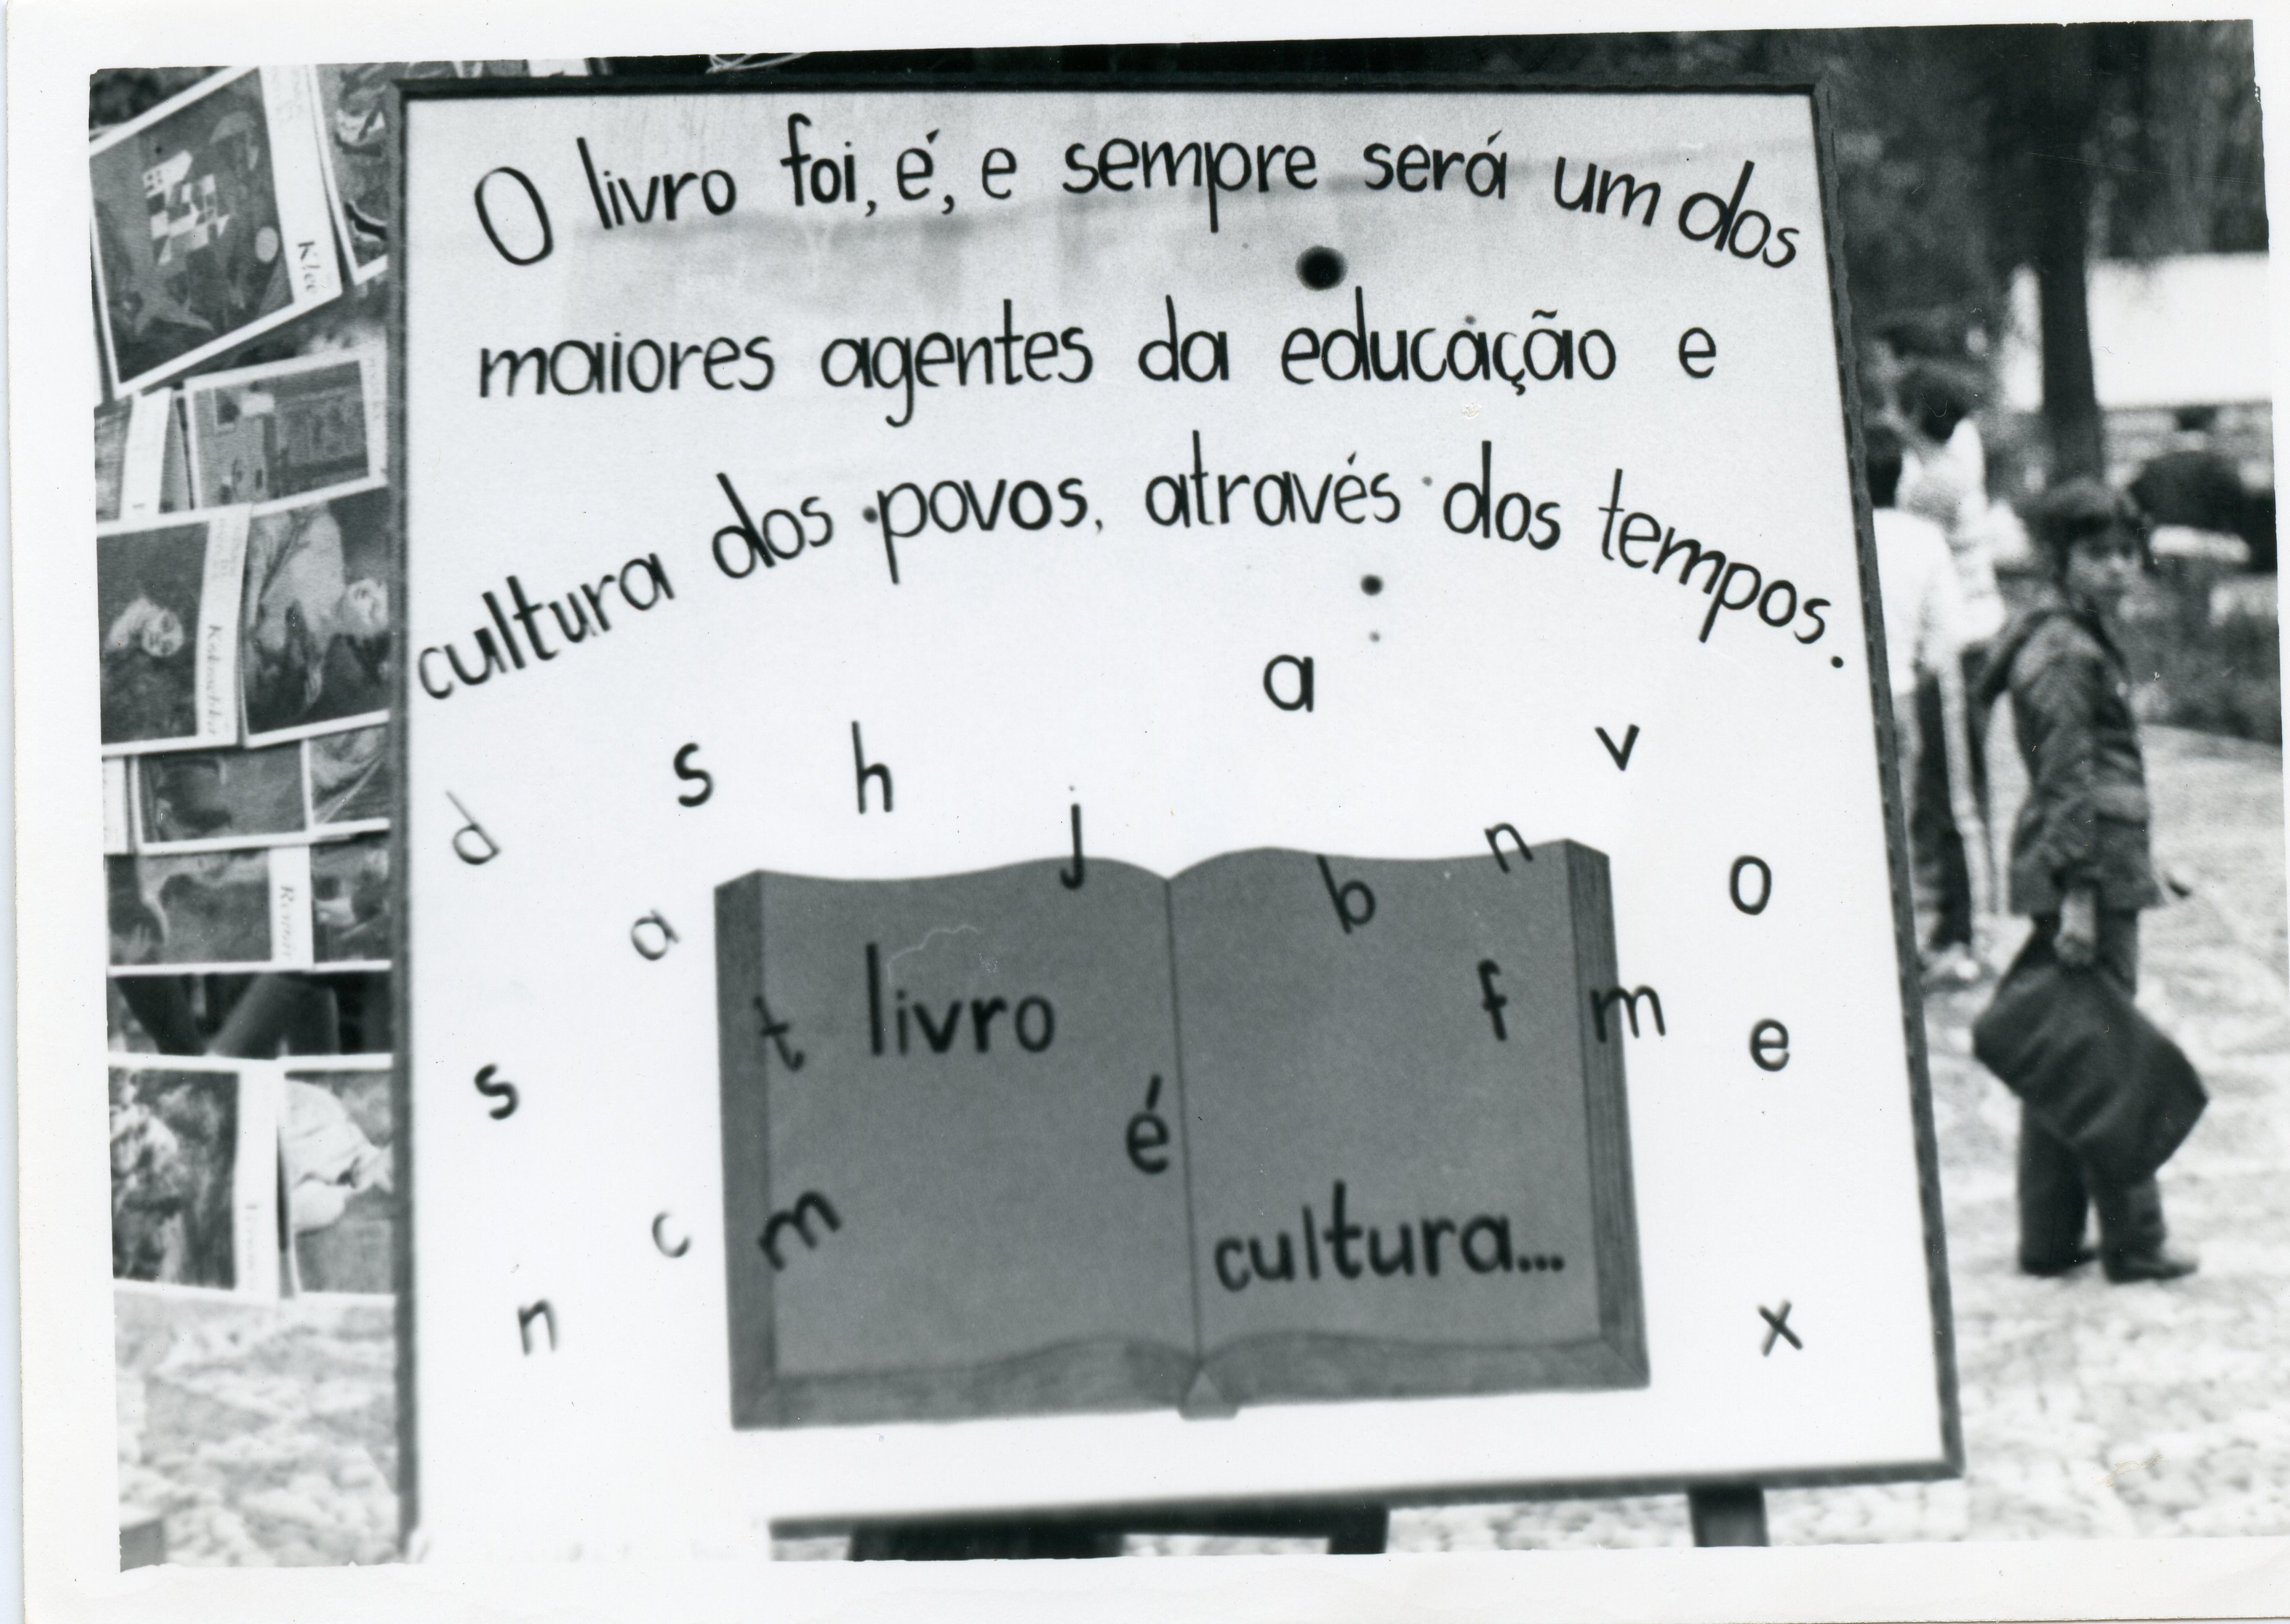 O livro foi, é, e sempre será um dos
maiores agentes da educação e
cultura dos povos, através dos tempos.
a
s h v
d j n
a b o
t livro f m e
s é
c m cultura...
n x
Klee